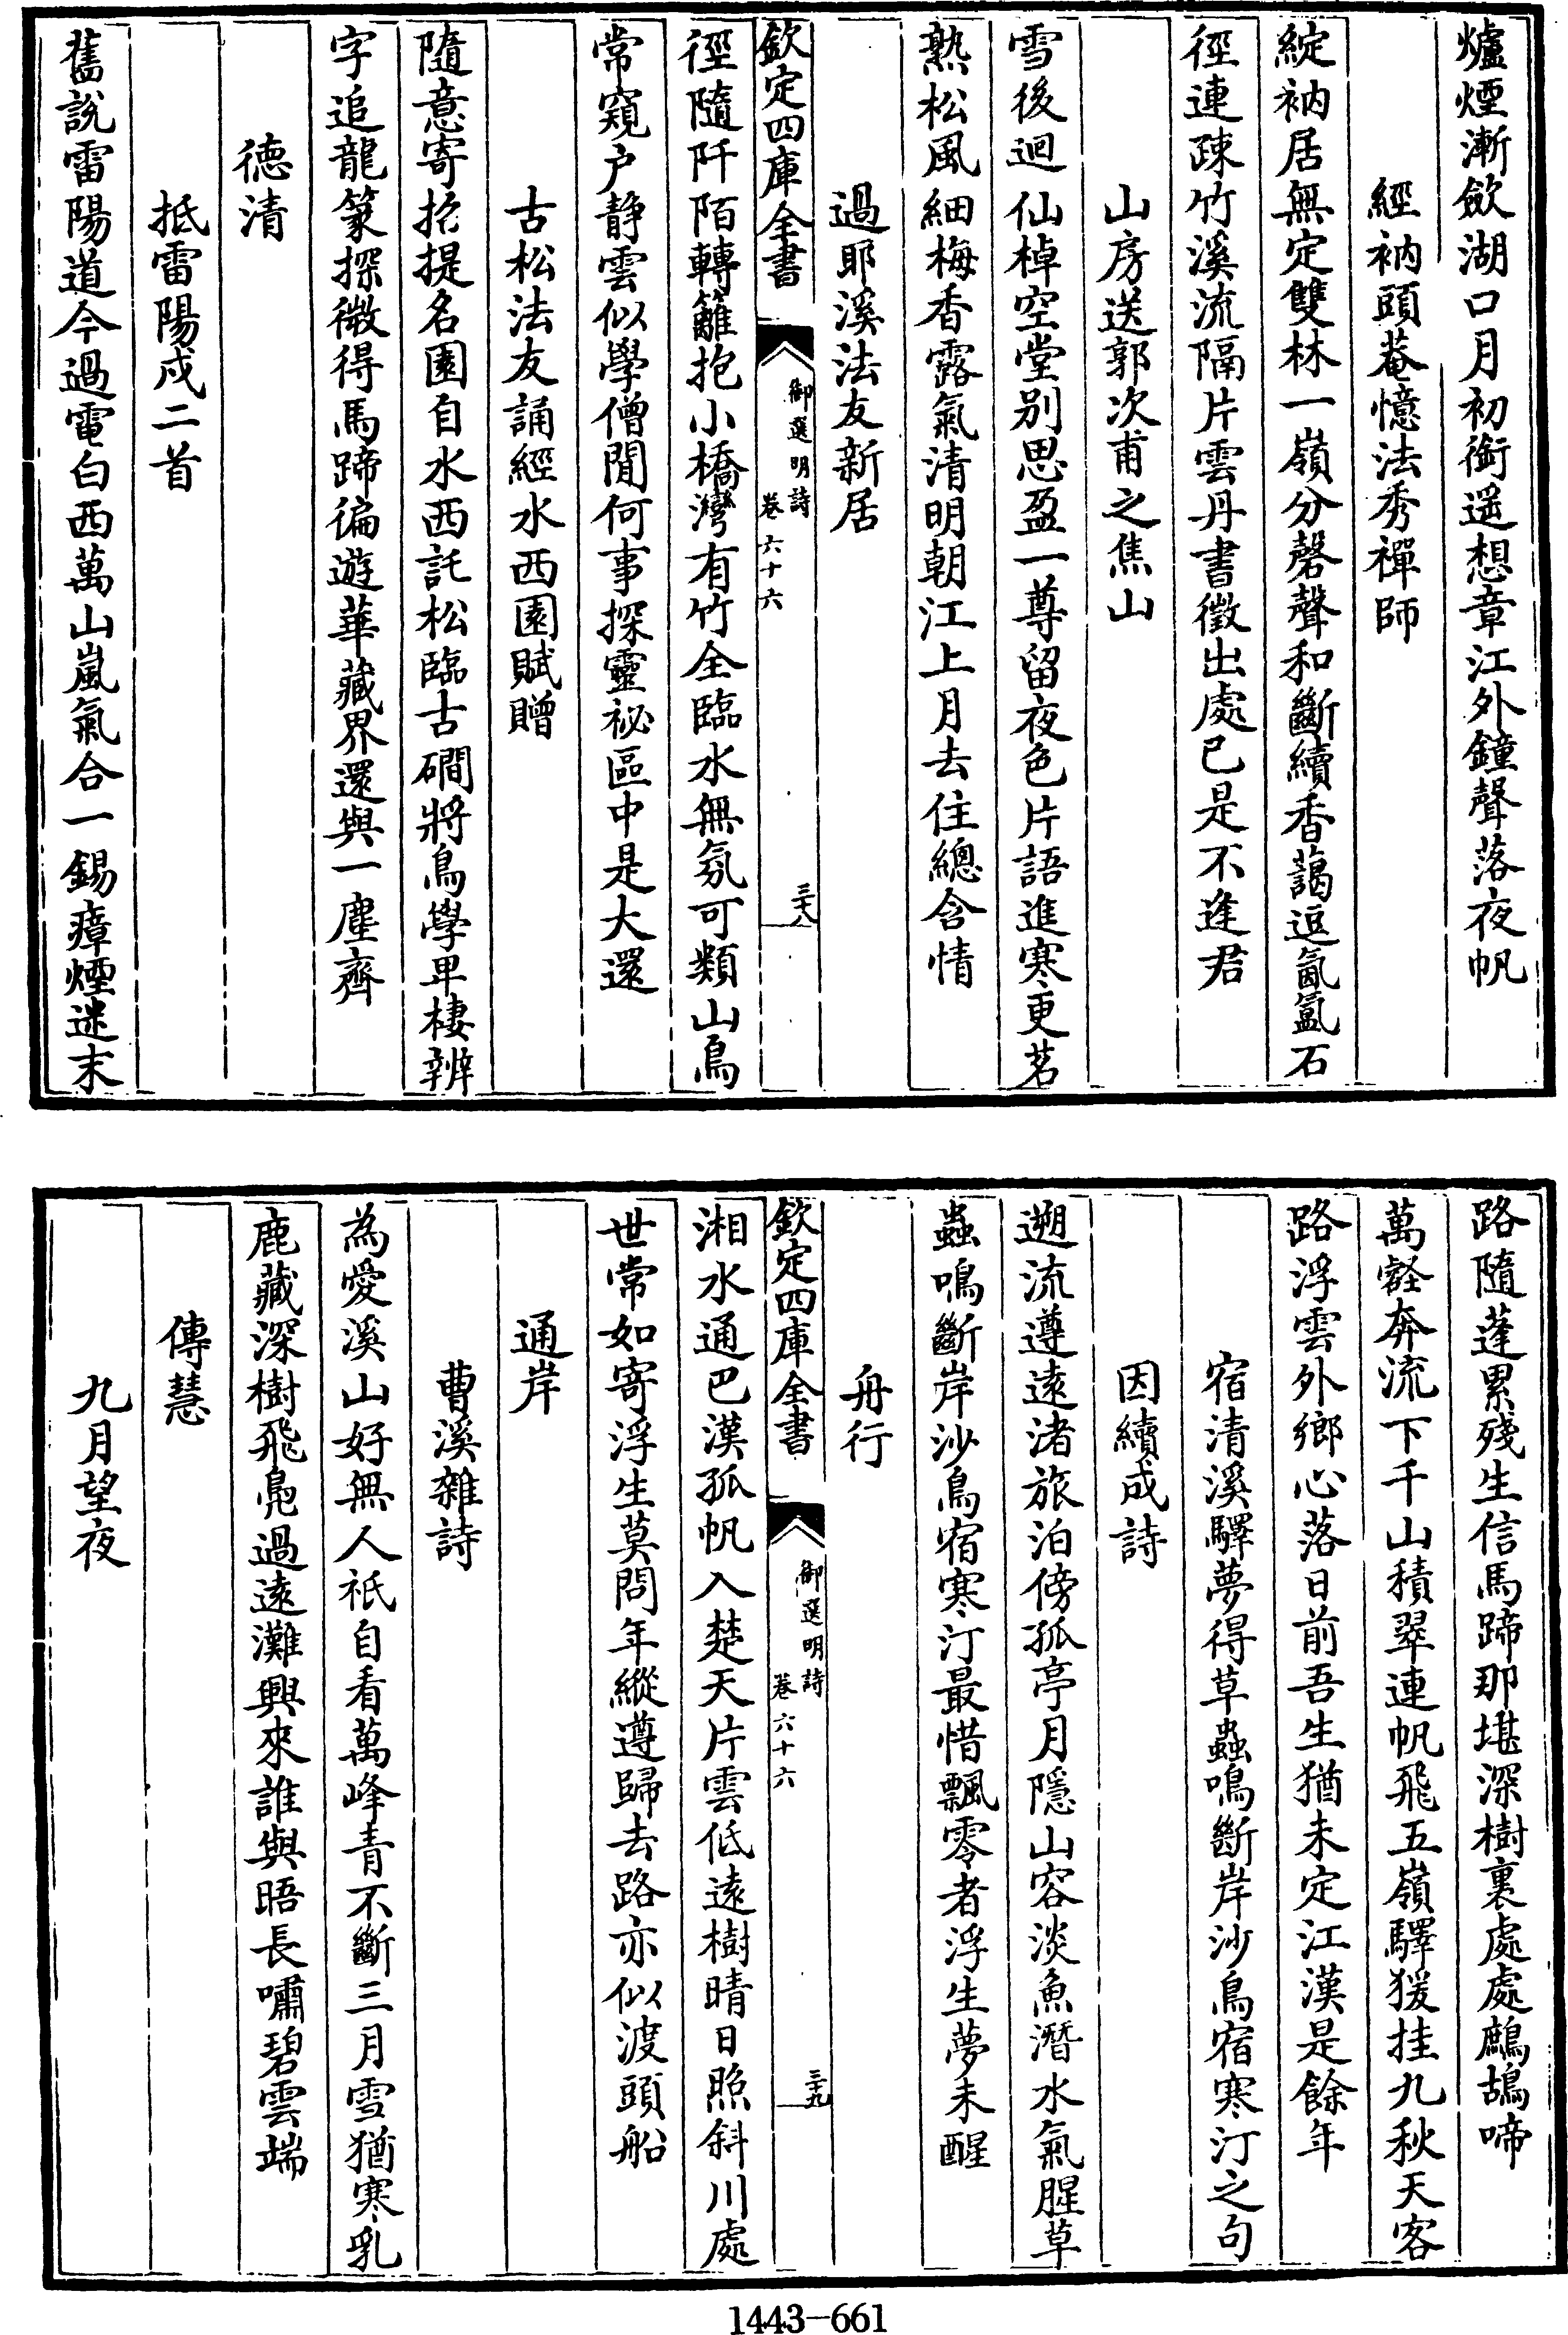 爐煙漸斂湖口月初銜遥想章江外鐘聲落夜帆
經衲頭菴憶法秀禪師
綻衲居無定雙林一嶺分磬聲和斷續香藹逗氤氲石
徑連疎竹溪流隔片雲丹書徵出處已是不逢君
山房送郭次甫之焦山
雪後迴仙棹空堂别思盈一尊留夜色片語進寒更茗
熟松風細梅香露氣清明朝江上月去住總含情
過耶溪法友新居
欽定四庫全書
御選明詩
卷六十六
三十八
徑隨阡陌轉籬抱小橋灣有竹全臨水無氛可類山鳥
常窺户静雲似學僧閒何事探靈祕區中是大還
古松法友誦經水西園賦贈
隨意寄招提名園自水西託松臨古磵將鳥學卑棲辨
字追龍篆探微得馬蹄徧遊華藏界還與一塵齊
德清
抵雷陽戍二首
舊説雷陽道今過電白西萬山嵐氣合一錫瘴煙迷末
路隨蓬累殘生信馬蹄那堪深樹裏處處鷓鴣啼
萬壑奔流下千山積翠連帆飛五嶺驛猨挂九秋天客
路浮雲外鄉心落日前吾生猶未定江漢是餘年
宿清溪驛夢得草蟲鳴斷岸沙鳥宿寒汀之句
因續成詩
遡流遵遠渚旅泊傍孤亭月隱山容淡魚潛水氣腥草
蟲鳴斷岸沙鳥宿寒汀最惜飄零者浮生夢未醒
舟行
欽定四庫全書
御選明詩
卷六十六
三十九
湘水通巴漢孤帆入楚天片雲低遠樹晴日照斜川處
世常如寄浮生莫問年縱遵歸去路亦似渡頭船
通岸
曹溪雜詩
為愛溪山好無人祇自看萬峰青不斷三月雪猶寒乳
鹿藏深樹飛鳧過遠灘興來誰與晤長嘯碧雲端
傳慧
九月望夜
1443-661